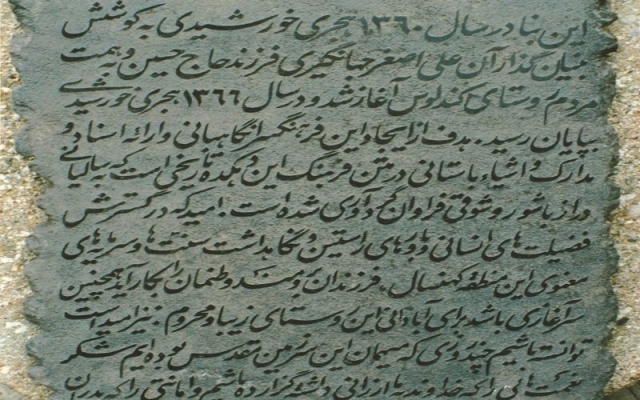 این بنا در سال ۱۳۶۰ هجری خورشیدی به کوشش
بنیان گذار آن علی اصغر جهانگیری فرزند حاج حسین و به همت
مردم روستای کندلوس آغاز شد و در سال ۱۳۶۶ هجری خورشیدی
بپایان رسید. هدف از ایجاد این فرهنگسرا نگاهبانی و ارائه اسناد و
مدارک و اشیاء باستانی در متن فرهنگ این دهکده تاریخی است که به سالیانی
دراز با شور و شوقی فراوان گردآوری شده است. امید که در گسترش
فضیلت های انسانی و خوبی های راستین و نگاهداشت سنت ها و سرمایه های
معنوی این منطقه کهنسال، فرزندان برومند وطنمان را بکار آید همچنین
سرآغازی باشد برای آبادانی این روستای زیبا و محروم. نیز امید است
توانسته باشیم چند روزی که میهمان این سرزمین مقدس بوده ایم شکر
نعمت هایی را که خداوند به ما ارزانی داشته گزارده باشیم و امانتی را که پدران